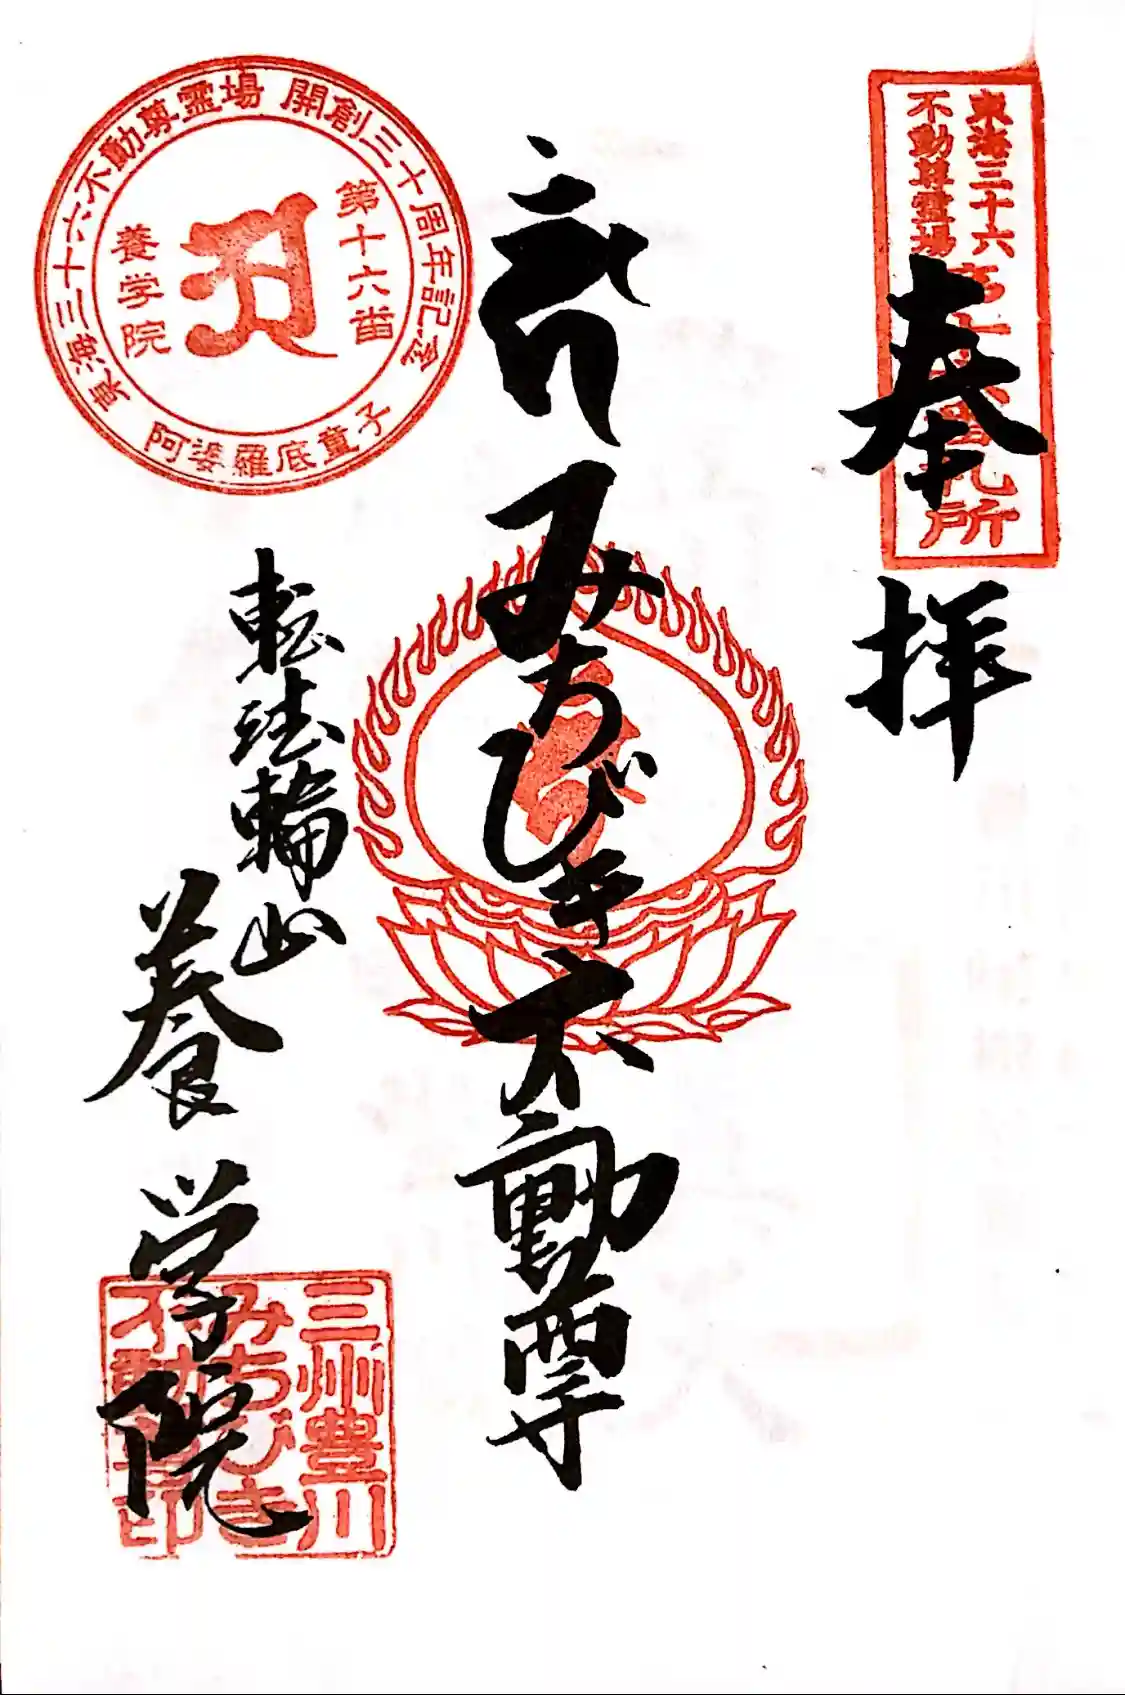 東海三十六
不動尊霊場
第十六番札所
奉拝
みちびき不動尊
転法輪山
養学院
東海三十六不動尊霊場 開創三十周年記念
第十六番
養学院
阿婆羅底童子
三州豊川
みちびき
不動尊印